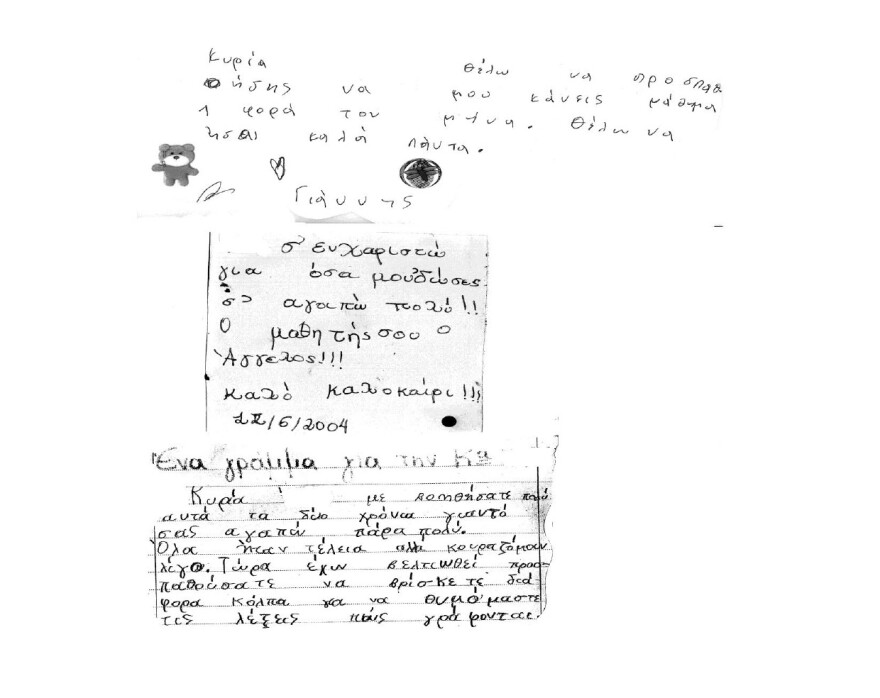 Κυρία θέλω να προσπαθ
ήσης να μου κάνεις μάθημα
1 φορά τον μήνα. Θέλω να
ήσαι καλά πάντα.
Γιάννης
σ' ευχαριστώ
για όσα μου δώσες
σ' αγαπώ πολύ!!
Ο μαθητής σου ο
Άγγελος!!!
καλό καλοκαίρι!!!
/6/2004
Ένα γράμμα για την Κα
Κυρία με βοηθήσατε πολύ
αυτά τα δύο χρόνια γιαυτό
σας αγαπώ πάρα πολύ.
Όλα ήταν τέλεια αλλά κουραζόμουν
λίγο. Τώρα έχω βελτιωθεί προσ-
παθούσατε να βρίσκετε διά-
φορα κόλπα για να θυμόμαστε
τις λέξεις πώς γράφονται.